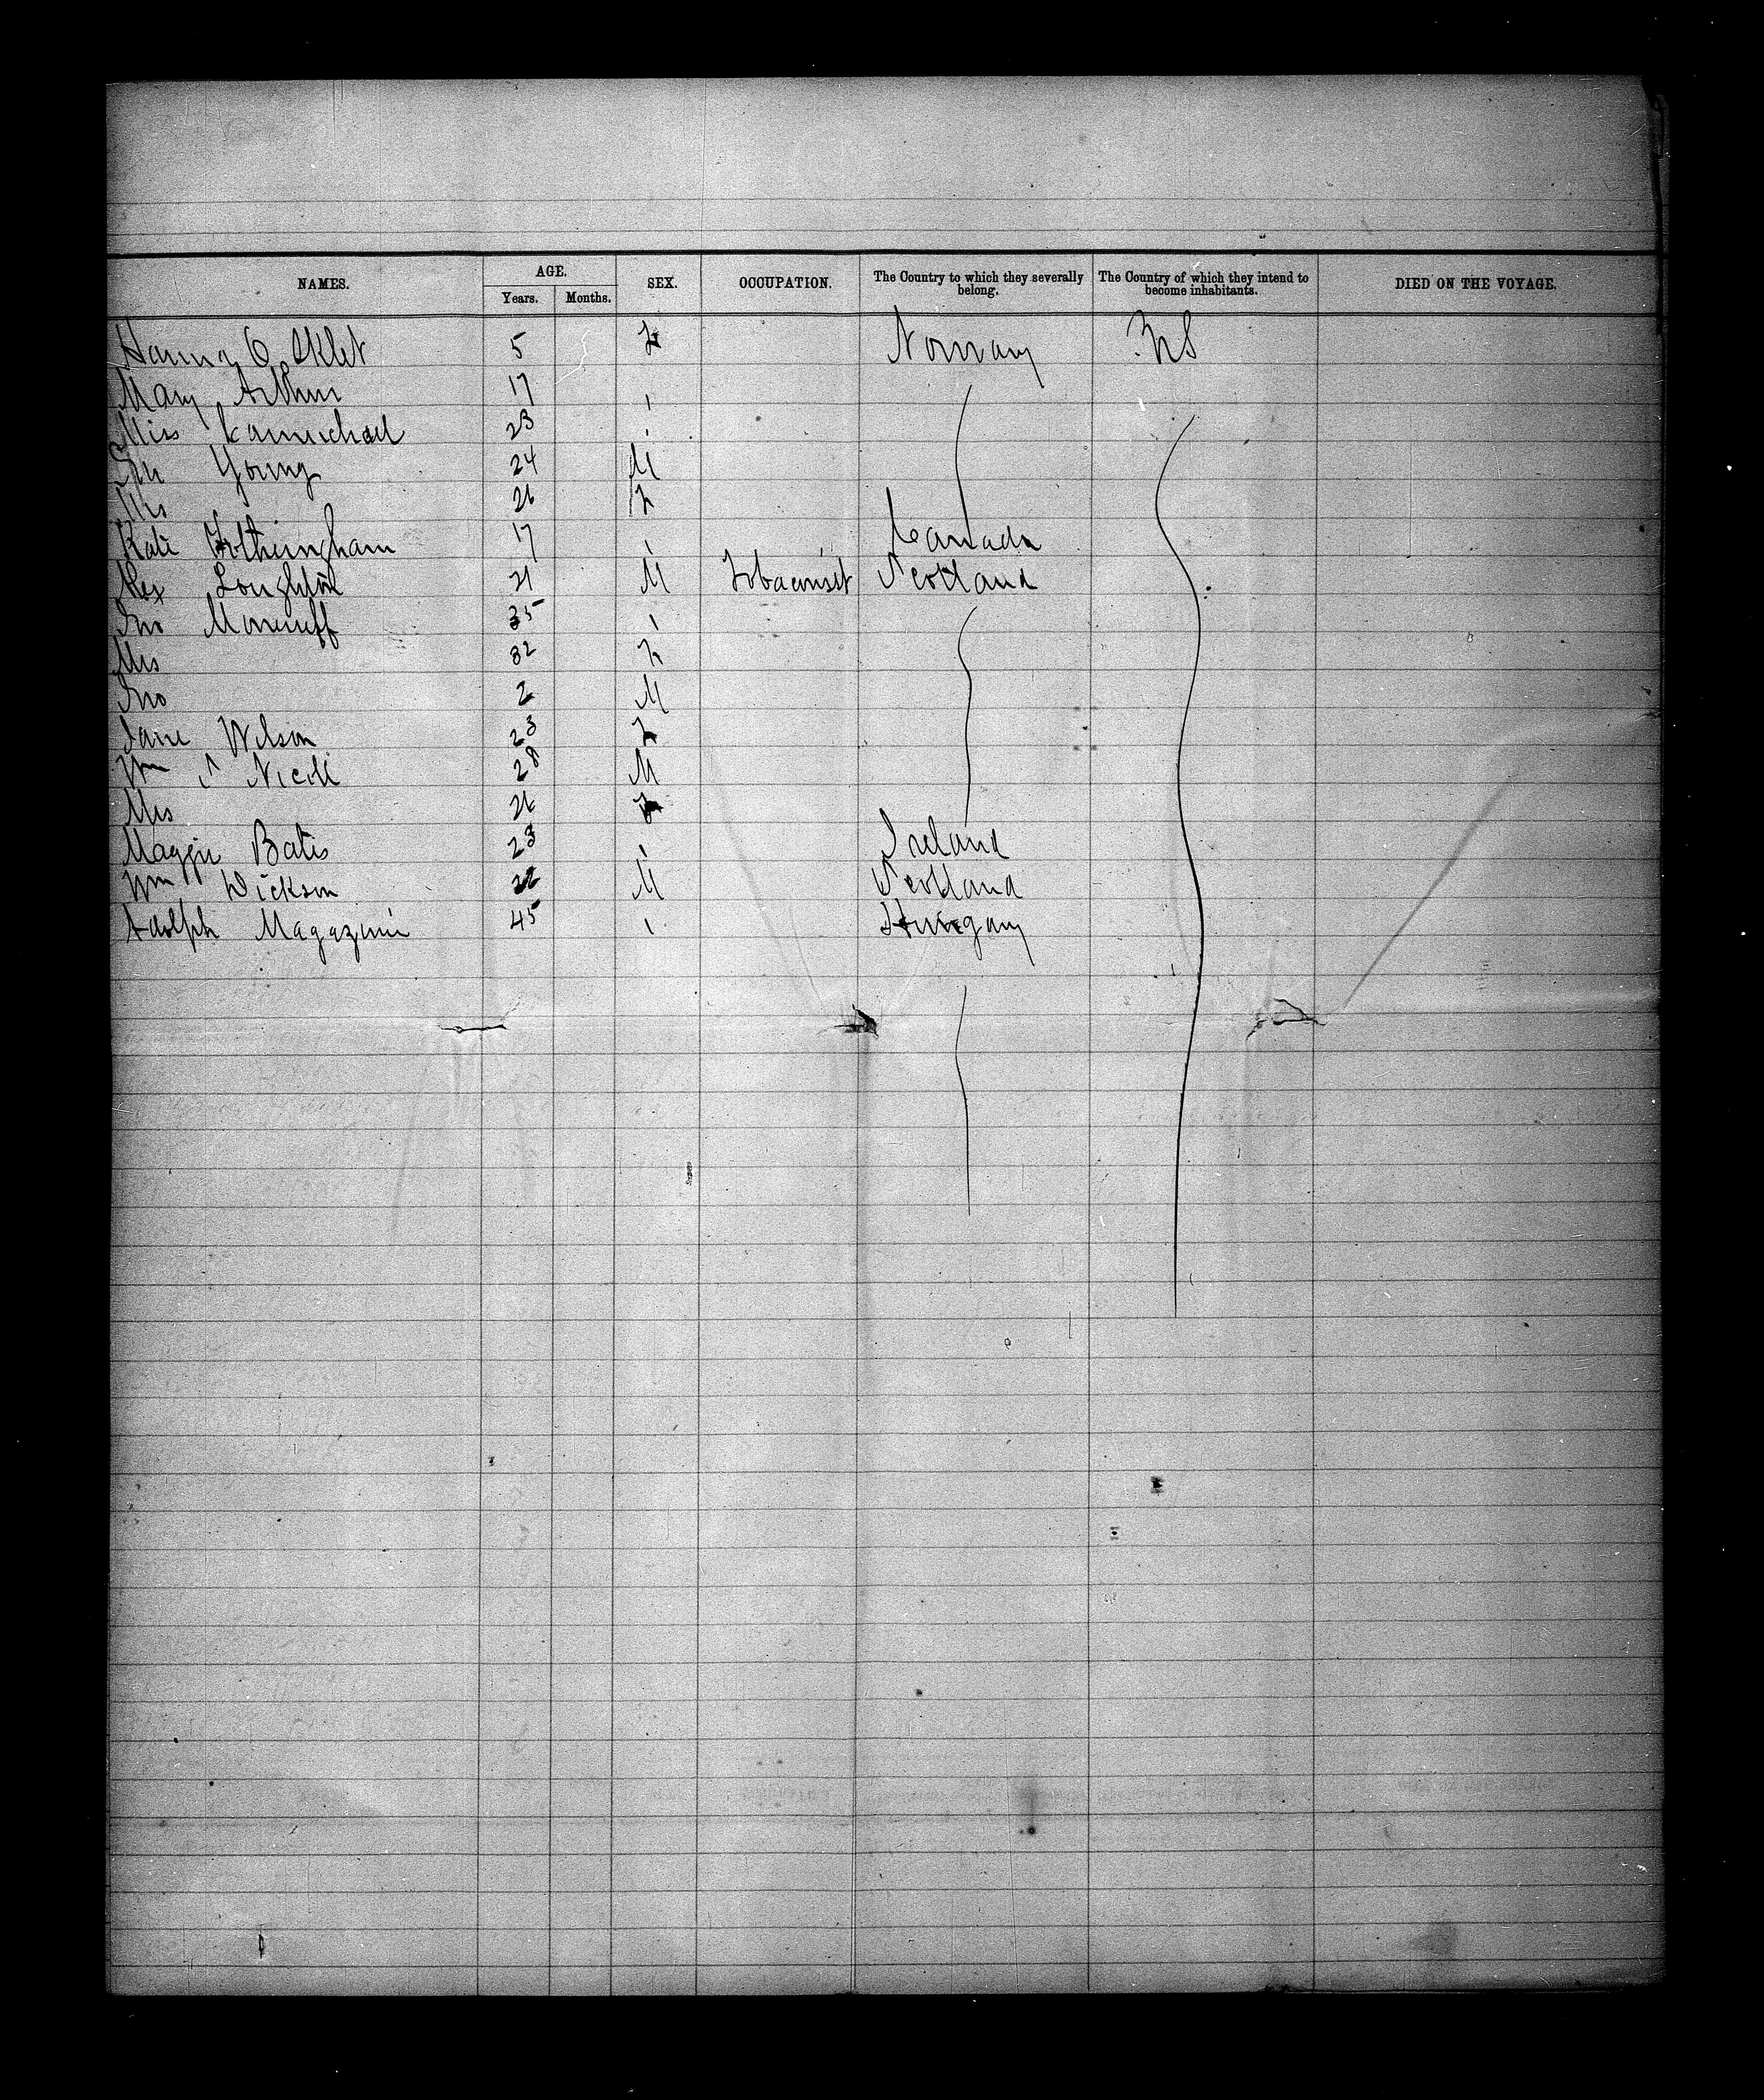 NAMES. AGE. SEX. OCCUPATION. The Country to which they severally belong. The Country of which they intend to become inhabitants. DIED ON THE VOYAGE.
Years. Months.
Hanna O. Sklet 5 F Norway US
Mary Arthur 17 "
Miss Carmichael 23 "
Jno Young 24 M
Mrs 26 F
Kate Fotheringham 17 " Canada
Alex Loughton 21 M Tobacconist Scotland
Jno Moncrieff 35 "
Mrs 32 F
Jno 2 M
Jane Wilson 23 F
Wm S Nicoll 28 M
Mrs 26 F
Maggie Bates 23 " Ireland
Wm Dickson 22 M Scotland
Adolph Magazine 45 " Hungary